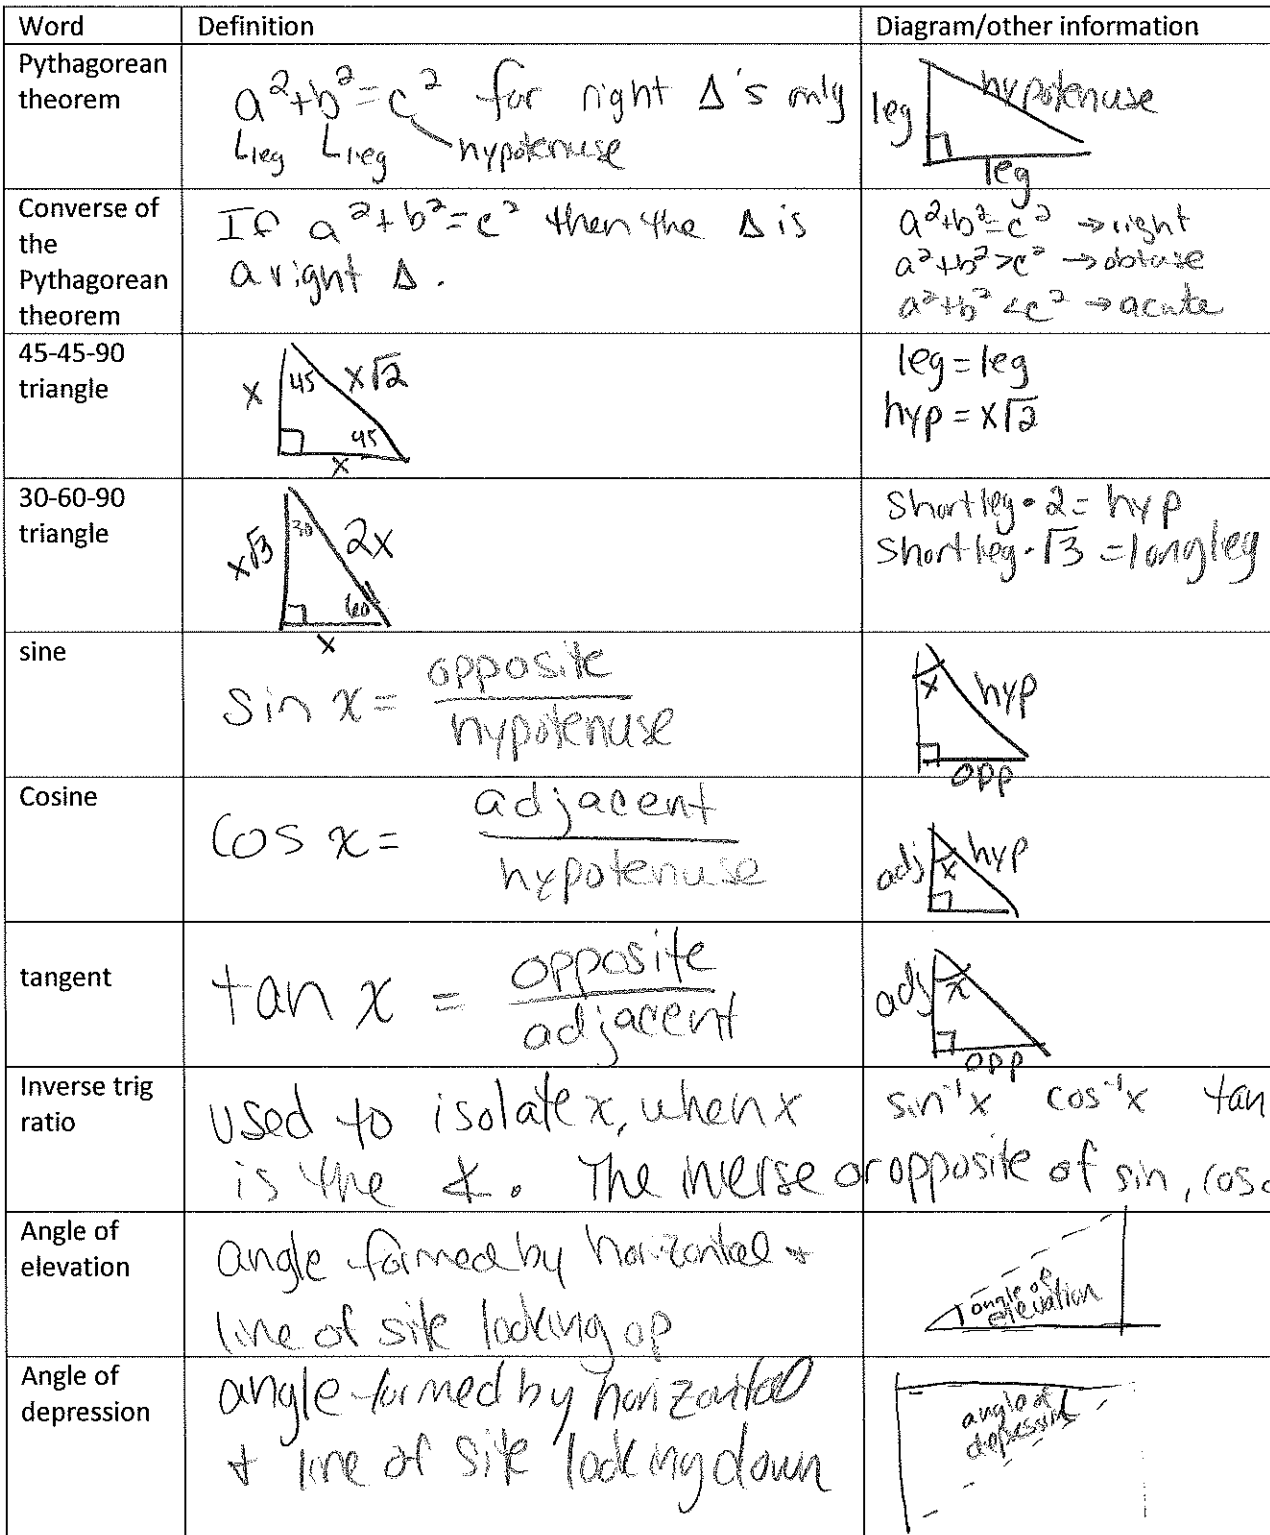 Word Definition Diagram/other information
Pythagorean theorem
a²+b²=c² for right Δ's only
leg leg hypotenuse
leg hypotenuse
leg
Converse of the Pythagorean theorem
If a²+b²=c² then the Δ is
a right Δ.
a²+b²=c² → right
a²+b²>c² → obtuse
a²+b²<c² → acute
45-45-90 triangle
x 45 x√2
45
x
leg=leg
hyp=x√2
30-60-90 triangle
x√3 30 2x
60
x
Short leg•2=hyp
Short leg•√3=long leg
sine
sin x = opposite
hypotenuse
x hyp
opp
Cosine
Cos x = adjacent
hypotenuse
adj x hyp
tangent
tan x = opposite
adjacent
adj x
opp
Inverse trig ratio
used to isolate x, when x
is the ∡. The inverse or opposite of sin, cos
sin⁻¹x cos⁻¹x tan
Angle of elevation
angle formed by horizontal +
line of site looking up
angle of
elevation
Angle of depression
angle formed by horizontal
+ line of site looking down
angle of
depression